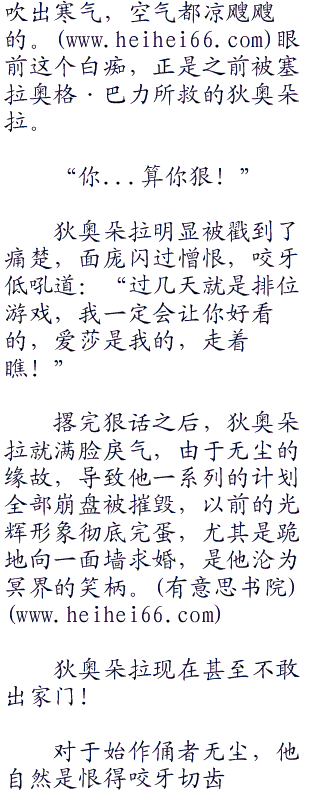 吹出寒气，空气都凉飕飕
的。(www.heihei66.com)眼
前这个白痴，正是之前被塞
拉奥格·巴力所救的狄奥朵
拉。
“你...算你狠！”
狄奥朵拉明显被戳到了
痛楚，面庞闪过憎恨，咬牙
低吼道：“过几天就是排位
游戏，我一定会让你好看
的，爱莎是我的，走着
瞧！”
撂完狠话之后，狄奥朵
拉就满脸戾气，由于无尘的
缘故，导致他一系列的计划
全部崩盘被摧毁，以前的光
辉形象彻底完蛋，尤其是跪
地向一面墙求婚，是他沦为
冥界的笑柄。(有意思书院)
(www.heihei66.com)
狄奥朵拉现在甚至不敢
出家门！
对于始作俑者无尘，他
自然是恨得咬牙切齿